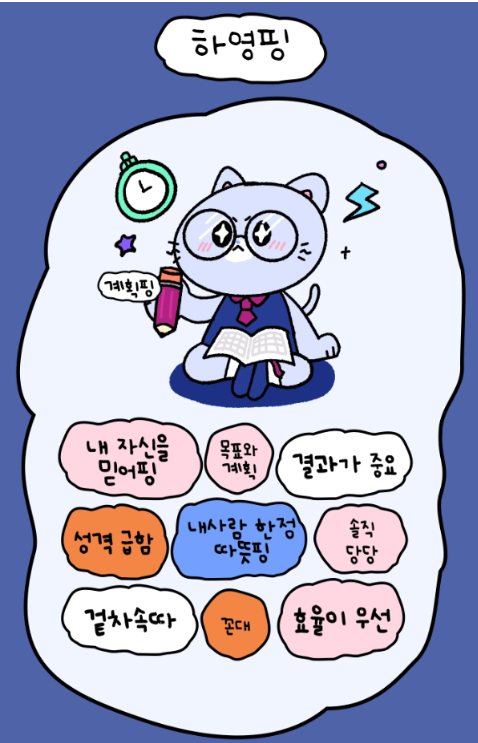 하영핑
계획핑
내 자신을
믿어핑
목표와
계획
결과가 중요
성격 급함
내사람 한정
따뜻핑
솔직
당당
겉차속따
꼰대
효율이 우선